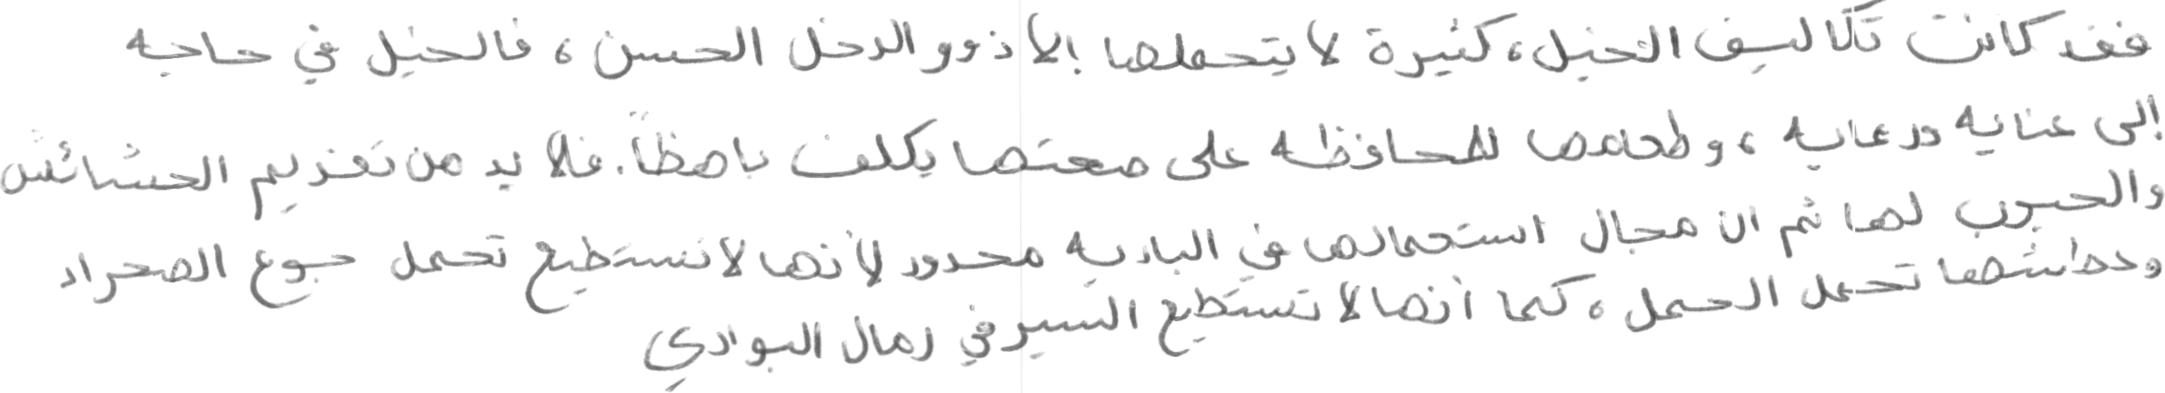 فقد كانت تكاليف الخيل، كثيرة لا يتحملها إلا ذوو الدخل الحسن، فالخيل في حاجه
إلى عنايه ورعايه، وطعامها للمحافظه على صحتها يكلف باهظاً. فلا بد من تقديم الحشائش
والحبوب لها ثم ان مجال استعمالها في الباديه محدود لأنها لا تستطيع تحمل جوع الصحراء
وعطشها تحمل الجمل، كما أنها لا تستطيع السير في رمال البوادي